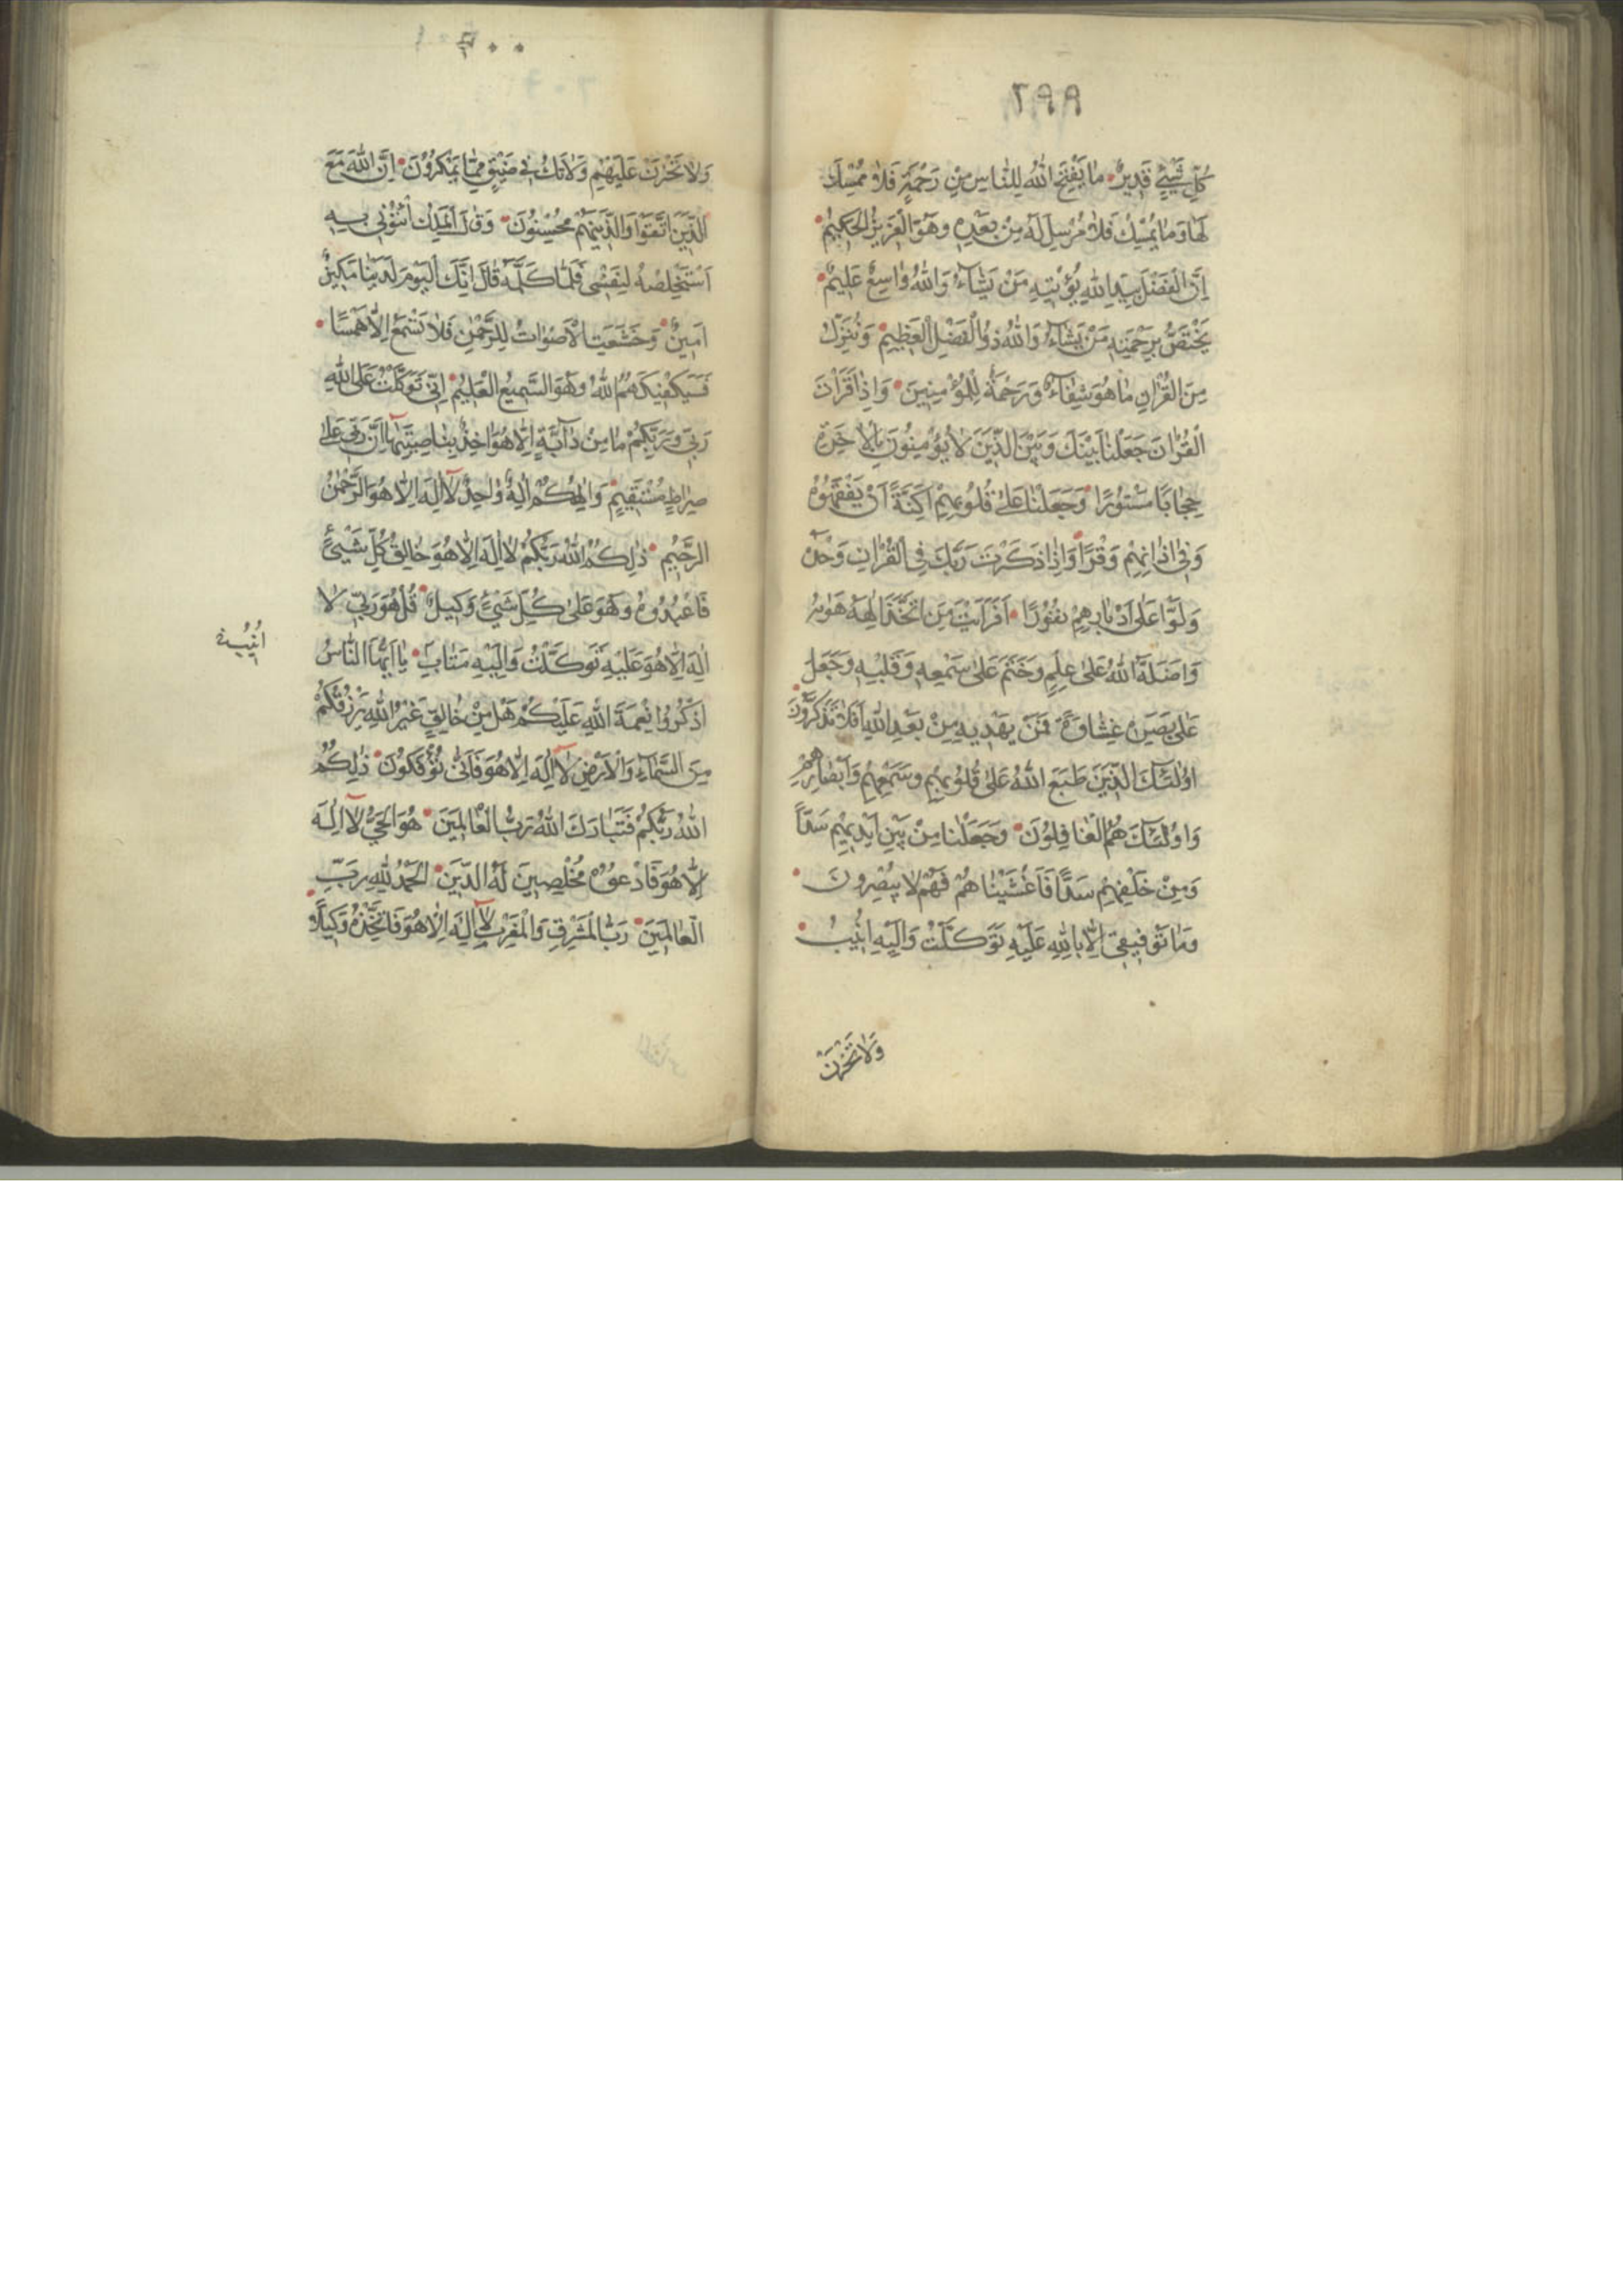 ٢٩٩
كُلِّ شَيْئٍ قَدِيرٌ مَا يَفْتَحِ اللهُ لِلنَّاسِ مِنْ رَحْمَةٍ فَلَا مُمْسِكَ
لَهَا وَمَا يُمْسِكْ فَلَا مُرْسِلَ لَهُ مِنْ بَعْدِهِ وَهُوَ الْعَزِيزُ الْحَكِيمُ
اِنَّ الْفَضْلَ بِيَدِ اللهِ يُؤْتِيهِ مَنْ يَشَاءُ وَاللهُ وَاسِعٌ عَلِيمٌ
يَخْتَصُّ بِرَحْمَتِهِ مَنْ يَشَاءُ وَاللهُ ذُو الْفَضْلِ الْعَظِيمِ وَنُنَزِّلُ
مِنَ الْقُرْاٰنِ مَا هُوَ شِفَاءٌ وَرَحْمَةٌ لِلْمُؤْمِنِينَ وَاِذَا قَرَأْتَ
الْقُرْاٰنَ جَعَلْنَا بَيْنَكَ وَبَيْنَ الَّذِينَ لَا يُؤْمِنُونَ بِالْاٰخِرَةِ
حِجَابًا مَسْتُورًا وَجَعَلْنَا عَلٰى قُلُوبِهِمْ اَكِنَّةً اَنْ يَفْقَهُوهُ
وَفِى اٰذَانِهِمْ وَقْرًا وَاِذَا ذَكَرْتَ رَبَّكَ فِى الْقُرْاٰنِ وَحْدَهُ
وَلَّوْا عَلٰى اَدْبَارِهِمْ نُفُورًا اَفَرَاَيْتَ مَنِ اتَّخَذَ اِلٰهَهُ هَوٰيهُ
وَاَضَلَّهُ اللهُ عَلٰى عِلْمٍ وَخَتَمَ عَلٰى سَمْعِهِ وَقَلْبِهِ وَجَعَلَ
عَلٰى بَصَرِهِ غِشَاوَةً فَمَنْ يَهْدِيهِ مِنْ بَعْدِ اللهِ اَفَلَا تَذَكَّرُونَ
اُولٰئِكَ الَّذِينَ طَبَعَ اللهُ عَلٰى قُلُوبِهِمْ وَسَمْعِهِمْ وَاَبْصَارِهِمْ
وَاُولٰئِكَ هُمُ الْغَافِلُونَ وَجَعَلْنَا مِنْ بَيْنِ اَيْدِيهِمْ سَدًّا
وَمِنْ خَلْفِهِمْ سَدًّا فَاَغْشَيْنَاهُمْ فَهُمْ لَا يُبْصِرُونَ
وَمَا تَوْفِيقِى اِلَّا بِاللهِ عَلَيْهِ تَوَكَّلْتُ وَاِلَيْهِ اُنِيبُ
وَلَا تَحْزَنْ
وَلَا تَحْزَنْ عَلَيْهِمْ وَلَا تَكُ فِى ضَيْقٍ مِمَّا يَمْكُرُونَ اِنَّ اللهَ مَعَ
الَّذِينَ اتَّقَوْا وَالَّذِينَ هُمْ مُحْسِنُونَ وَقَالَ الْمَلِكُ ائْتُونِى بِهِ
اَسْتَخْلِصْهُ لِنَفْسِى فَلَمَّا كَلَّمَهُ قَالَ اِنَّكَ الْيَوْمَ لَدَيْنَا مَكِينٌ
اَمِينٌ وَخَشَعَتِ الْاَصْوَاتُ لِلرَّحْمٰنِ فَلَا تَسْمَعُ اِلَّا هَمْسًا
فَسَيَكْفِيكَهُمُ اللهُ وَهُوَ السَّمِيعُ الْعَلِيمُ اِنِّى تَوَكَّلْتُ عَلَى اللهِ
رَبِّى وَرَبِّكُمْ مَا مِنْ دَابَّةٍ اِلَّا هُوَ اٰخِذٌ بِنَاصِيَتِهَا اِنَّ رَبِّى عَلٰى
صِرَاطٍ مُسْتَقِيمٍ وَاِلٰهُكُمْ اِلٰهٌ وَاحِدٌ لَا اِلٰهَ اِلَّا هُوَ الرَّحْمٰنُ
الرَّحِيمُ ذٰلِكُمُ اللهُ رَبُّكُمْ لَا اِلٰهَ اِلَّا هُوَ خَالِقُ كُلِّ شَيْئٍ
فَاعْبُدُوهُ وَهُوَ عَلٰى كُلِّ شَيْئٍ وَكِيلٌ قُلْ هُوَ رَبِّى لَا
اِلٰهَ اِلَّا هُوَ عَلَيْهِ تَوَكَّلْتُ وَاِلَيْهِ مَتَابِ يَا اَيُّهَا النَّاسُ
اذْكُرُوا نِعْمَةَ اللهِ عَلَيْكُمْ هَلْ مِنْ خَالِقٍ غَيْرُ اللهِ يَرْزُقُكُمْ
مِنَ السَّمَاءِ وَالْاَرْضِ لَا اِلٰهَ اِلَّا هُوَ فَاَنّٰى تُؤْفَكُونَ ذٰلِكُمُ
اللهُ رَبُّكُمْ فَتَبَارَكَ اللهُ رَبُّ الْعَالَمِينَ هُوَ الْحَىُّ لَا اِلٰهَ
اِلَّا هُوَ فَادْعُوهُ مُخْلِصِينَ لَهُ الدِّينَ الْحَمْدُ لِلّٰهِ رَبِّ
الْعَالَمِينَ رَبُّ الْمَشْرِقِ وَالْمَغْرِبِ لَا اِلٰهَ اِلَّا هُوَ فَاتَّخِذْهُ وَكِيلًا